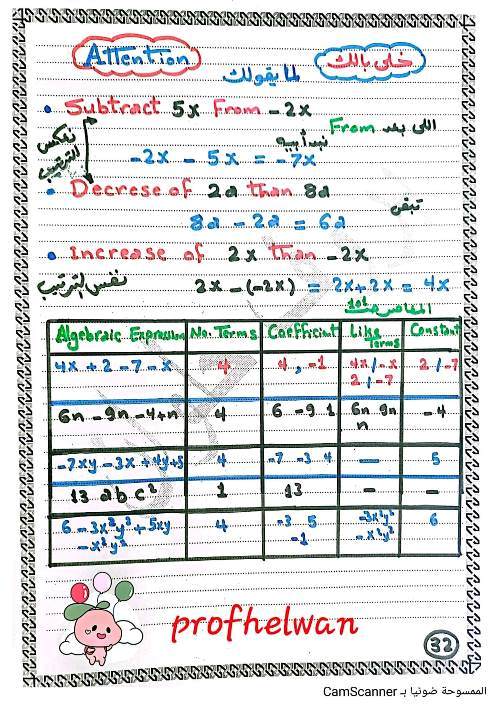 Attention
خلى بالك
لما يقولك
• Subtract 5x From -2x
اللى بعد From
نبدأ بيه
نعكس الترتيب
-2x - 5x = -7x
• Decrese of 2a than 8a
تبقى
8a - 2a = 6a
• Increase of 2x than -2x
نفس الترتيب
2x - (-2x) = 2x + 2x = 4x
Algebraic Expression No. Terms Coefficient Like Terms Constant
4x + 2 - 7 - x 4 4, -1 4x / -x 2 / -7 2 / -7
6n - 9n - 4 + n 4 6 -9 1 6n 9n n -4
-7xy - 3x + 4y + 5 4 -7 -3 4 — 5
13 a b c² 1 13 - -
6 - 3x²y³ + 5xy - x²y³ 4 -3 5 -1 -3x²y³ - x²y³ 6
profhelwan
32
الممسوحة ضوئيا بـ CamScanner